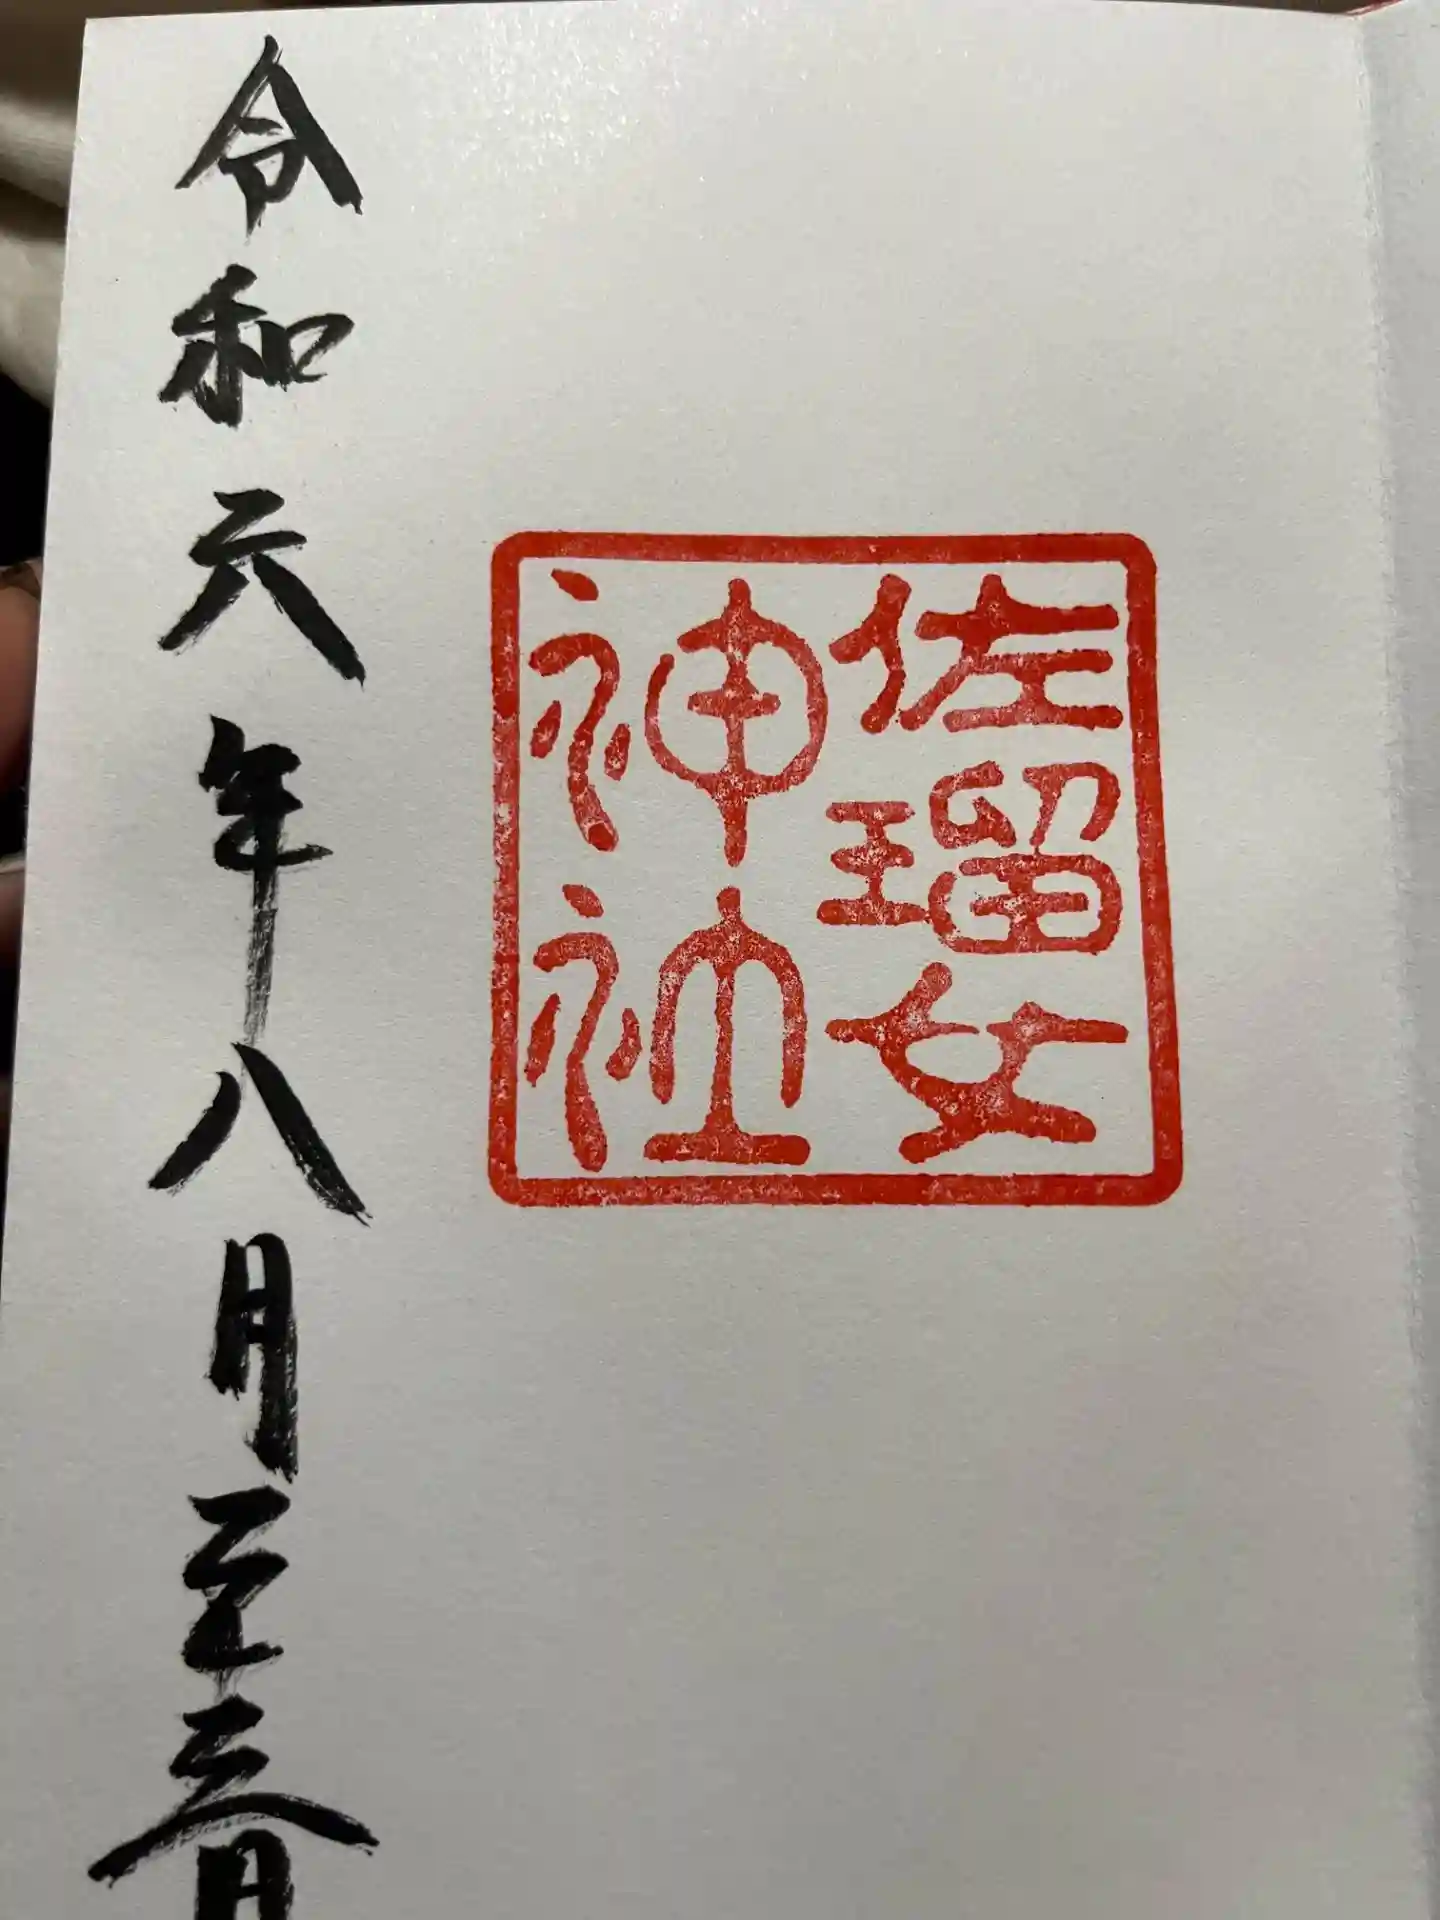 佐瑠女
神社
令和六年八月